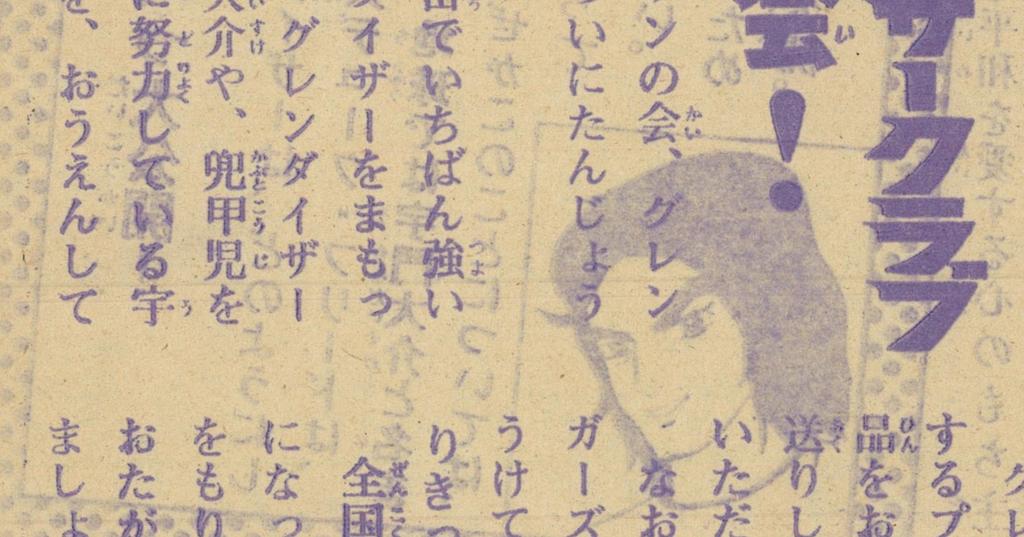 サークラブ
会!
ンの会、グレン
いにたんじょう
宙でいちばん強い
イザーをまもっ
グレンダイザー
大介や、兜甲児を
に努力している宇
を、おうえんして
グレ
するプ
品をお
送りし
いただ
なお
ガーズ
うけて
りきっ
全国
になっ
をもり
おたが
ましょ